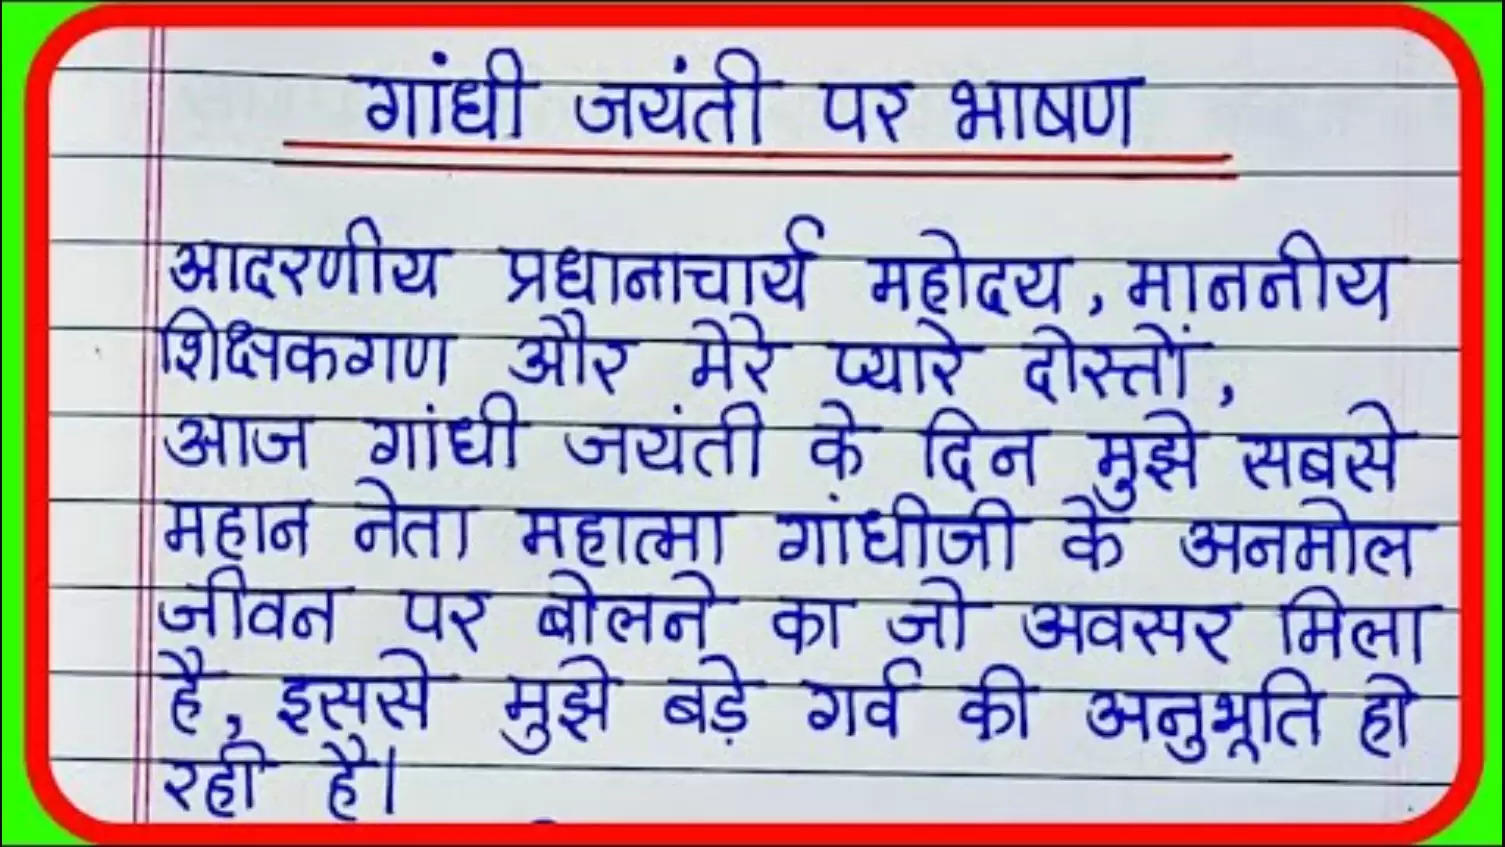 गांधी जयंती पर भाषण
आदरणीय प्रधानाचार्य महोदय, माननीय
शिक्षकगण और मेरे प्यारे दोस्तों,
आज गांधी जयंती के दिन मुझे सबसे
महान नेता महात्मा गांधीजी के अनमोल
जीवन पर बोलने का जो अवसर मिला
है, इससे मुझे बड़े गर्व की अनुभूति हो
रही है।